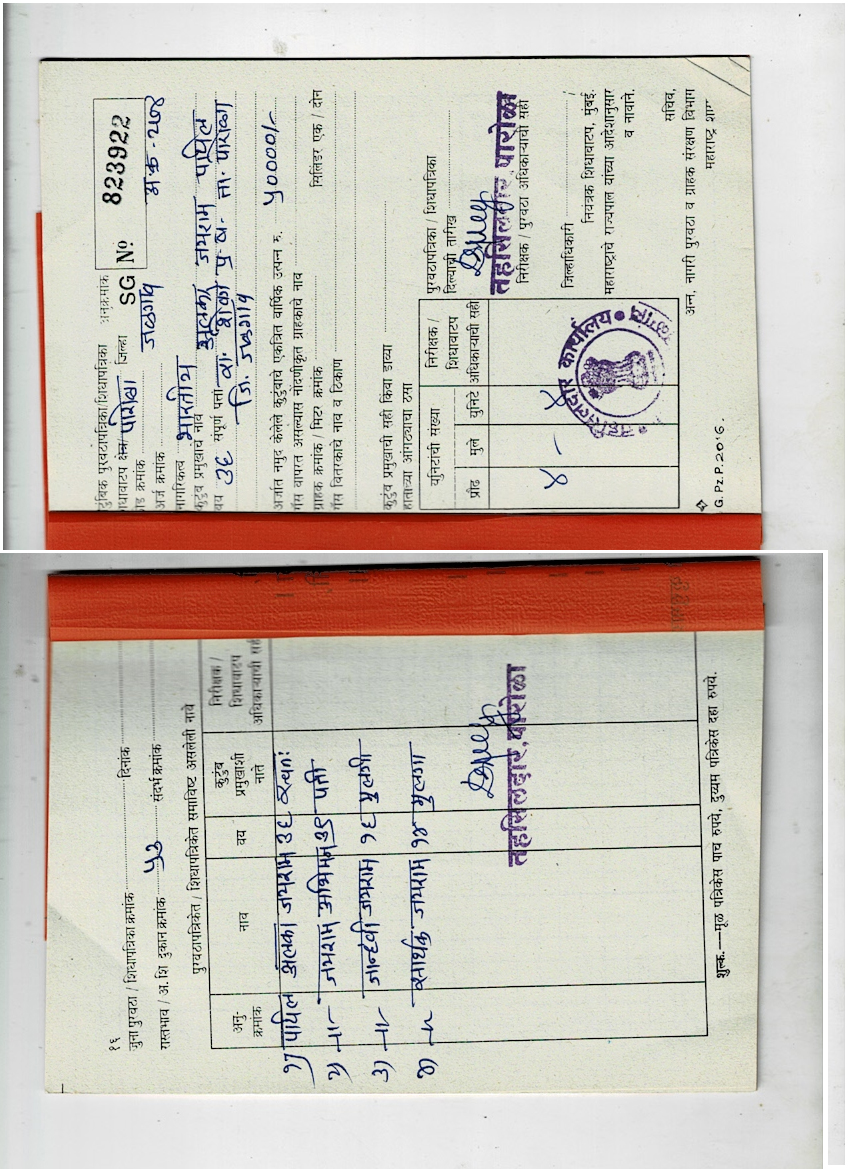 कुटुंबिक पुरवठापत्रिका/शिधापत्रिका अनुक्रमांक
SG № 823922
शिधावाटप क्षेत्र पारोळा जिल्हा जळगाव
कार्ड क्रमांक
अर्ज क्रमांक
नागरिकत्व भारतीय
कुटुंब प्रमुखाचे नाव अलका जयराम पाटील
वय ३६ संपूर्ण पत्ता ता. पारोळा
जि. जळगाव
अर्जात नमुद केलेले कुटुंबाचे एकत्रित वार्षिक उत्पन्न रु. ५००००/-
गॅस वापरत असल्यास नोंदणीकृत ग्राहकाचे नाव
ग्राहक क्रमांक / मिटर क्रमांक सिलिंडर एक / दोन
गॅस वितरकाचे नाव व ठिकाण
कुटुंब प्रमुखाची सही किंवा डाव्या
हाताच्या आंगठ्याचा ठसा
पुरवठापत्रिका / शिधापत्रिका
दिल्याची तारीख
तहसिलदार, पारोळा
निरीक्षक / पुरवठा अधिकाऱ्याची सही
युनिटांची संख्या
निरीक्षक /
शिधावाटप
अधिकाऱ्याची सही
प्रौढ मुले युनिट
४ - ४
तहसिलदार कार्यालय
जिल्हाधिकारी
नियंत्रक शिधावाटप, मुंबई.
महाराष्ट्राचे राज्यपाल यांच्या आदेशानुसार
व नावाने.
सचिव,
अन्न, नागरी पुरवठा व ग्राहक संरक्षण विभाग
महाराष्ट्र शास
G. Pz.P. 2016.
१६
जुना पुरवठा / शिधापत्रिका क्रमांक दिनांक
रास्तभाव / अ. शि दुकान क्रमांक ५३ संदर्भ क्रमांक
पुरवठापत्रिकेत / शिधापत्रिकेत समाविष्ट असलेली नावे
अनु-
क्रमांक
नाव
वय
कुटुंब
प्रमुखाशी
नाते
निरीक्षक /
शिधावाटप
अधिकाऱ्याची सही
१) पाटील अलका जयराम ३६ स्वतः
२) -॥- जयराम अभिमन ३९ पती
३) -॥- जान्हवी जयराम १६ मुलगी
४) -॥- सार्थक जयराम १४ मुलगा
तहसिलदार, पारोळा
शुल्क.—मूळ पत्रिकेस पाच रुपये, दुय्यम पत्रिकेस दहा रुपये.